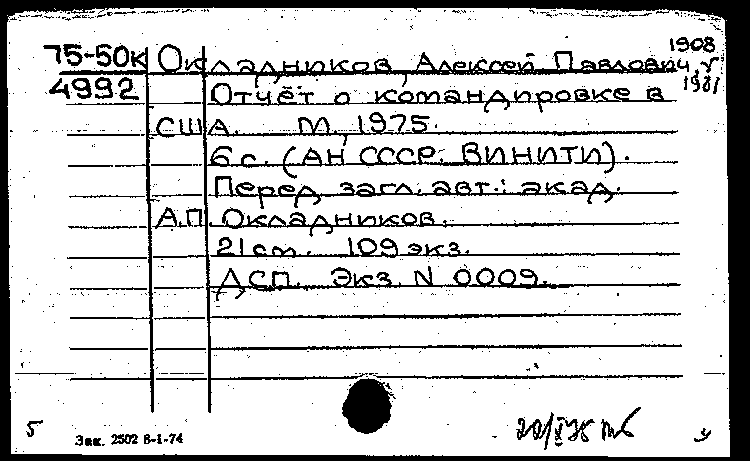 1908
75-50к Окладников, Алексей Павлович,
4992 1981
Отчёт о командировке в
США. М., 1975.
6 с. (АН СССР. ВИНИТИ).
Перед загл. авт.: акад.
А.П. Окладников.
21 см. 109 экз.
ДСП. Экз. N 0009.
5 Зак. 2502 8-1-74